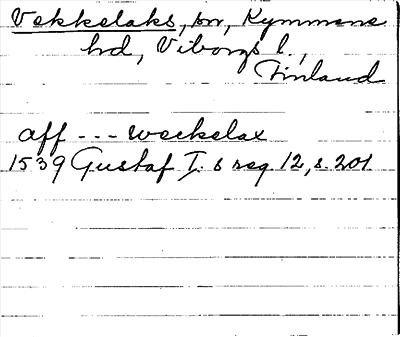 Vekkelaks, sn, Kymmene
hd, Viborgs l.,
Finland
aff --- weckelax
1539 Gustaf I. s reg 12, s. 201